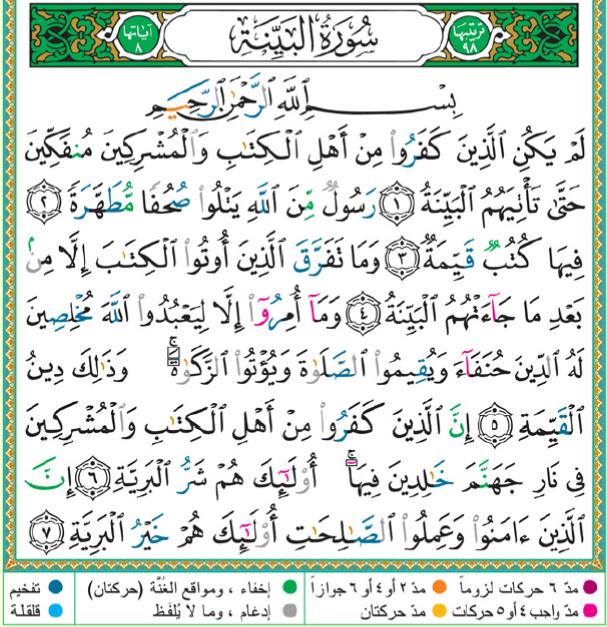 ترتيبها ٩٨ سُورَةُ البَيِّنَةِ آياتها ٨
بِسْمِ اللَّهِ الرَّحْمَٰنِ الرَّحِيمِ
لَمْ يَكُنِ الَّذِينَ كَفَرُوا مِنْ أَهْلِ الْكِتَٰبِ وَالْمُشْرِكِينَ مُنفَكِّينَ
حَتَّىٰ تَأْتِيَهُمُ الْبَيِّنَةُ ١ رَسُولٌ مِّنَ اللَّهِ يَتْلُوا صُحُفًا مُّطَهَّرَةً ٢
فِيهَا كُتُبٌ قَيِّمَةٌ ٣ وَمَا تَفَرَّقَ الَّذِينَ أُوتُوا الْكِتَٰبَ إِلَّا مِنۢ
بَعْدِ مَا جَآءَتْهُمُ الْبَيِّنَةُ ٤ وَمَآ أُمِرُوٓا إِلَّا لِيَعْبُدُوا اللَّهَ مُخْلِصِينَ
لَهُ الدِّينَ حُنَفَآءَ وَيُقِيمُوا الصَّلَوٰةَ وَيُؤْتُوا الزَّكَوٰةَ ۚ وَذَٰلِكَ دِينُ
الْقَيِّمَةِ ٥ إِنَّ الَّذِينَ كَفَرُوا مِنْ أَهْلِ الْكِتَٰبِ وَالْمُشْرِكِينَ
فِى نَارِ جَهَنَّمَ خَٰلِدِينَ فِيهَآ ۚ أُولَٰٓئِكَ هُمْ شَرُّ الْبَرِيَّةِ ٦ إِنَّ
الَّذِينَ ءَامَنُوا وَعَمِلُوا الصَّٰلِحَٰتِ أُولَٰٓئِكَ هُمْ خَيْرُ الْبَرِيَّةِ ٧
مدّ ٦ حركات لزوماً مدّ ٢ أو ٤ أو ٦ جوازاً إخفاء ، ومواقع الغُنَّة (حركتان) تفخيم
مدّ واجب ٤ أو ٥ حركات مدّ حركتان إدغام ، وما لا يُلفَظ قلقلة